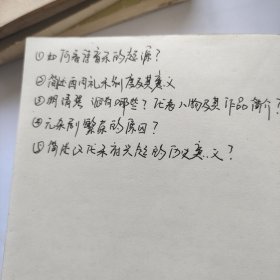 ①如何看待音乐的起源？
②简述西周礼乐制度及其意义
③明清琴派有哪些？代表人物及其作品简介？
④元杂剧繁荣的原因？
⑤简述汉代乐府兴起的历史意义？